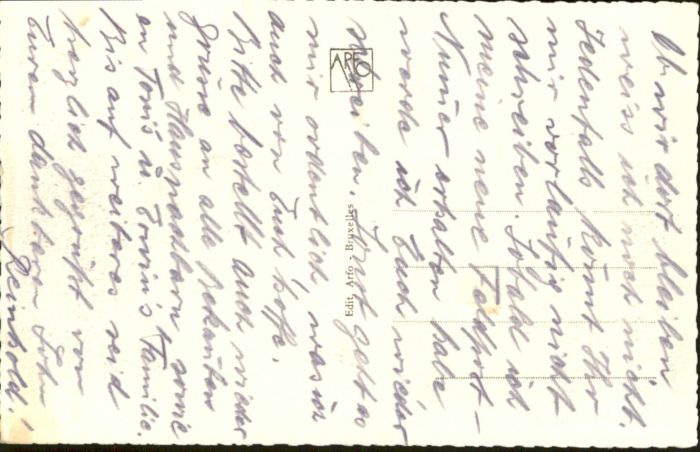 Ob wir dort bleiben
weiss ich noch nicht.
Jedenfalls könnt Ihr
mir vorläufig nicht
schreiben. Sobald ich
meine neue Feldpost-
Numer erhalten habe
werde ich Euch wieder
schreiben. Jetzt geht es
mir ordentlich was ich
auch von Euch hoffe.
Bitte bestellt auch wieder
Grüsse an alle Bekannten
und Hausnachbarn sowie
an Toni's u. Erwin's Familie.
Bis auf weiteres seid
herzlich gegrüßt von
Eurem dankbaren Sohn
Reinhold
ARFO
Edit. Arfo - Bruxelles